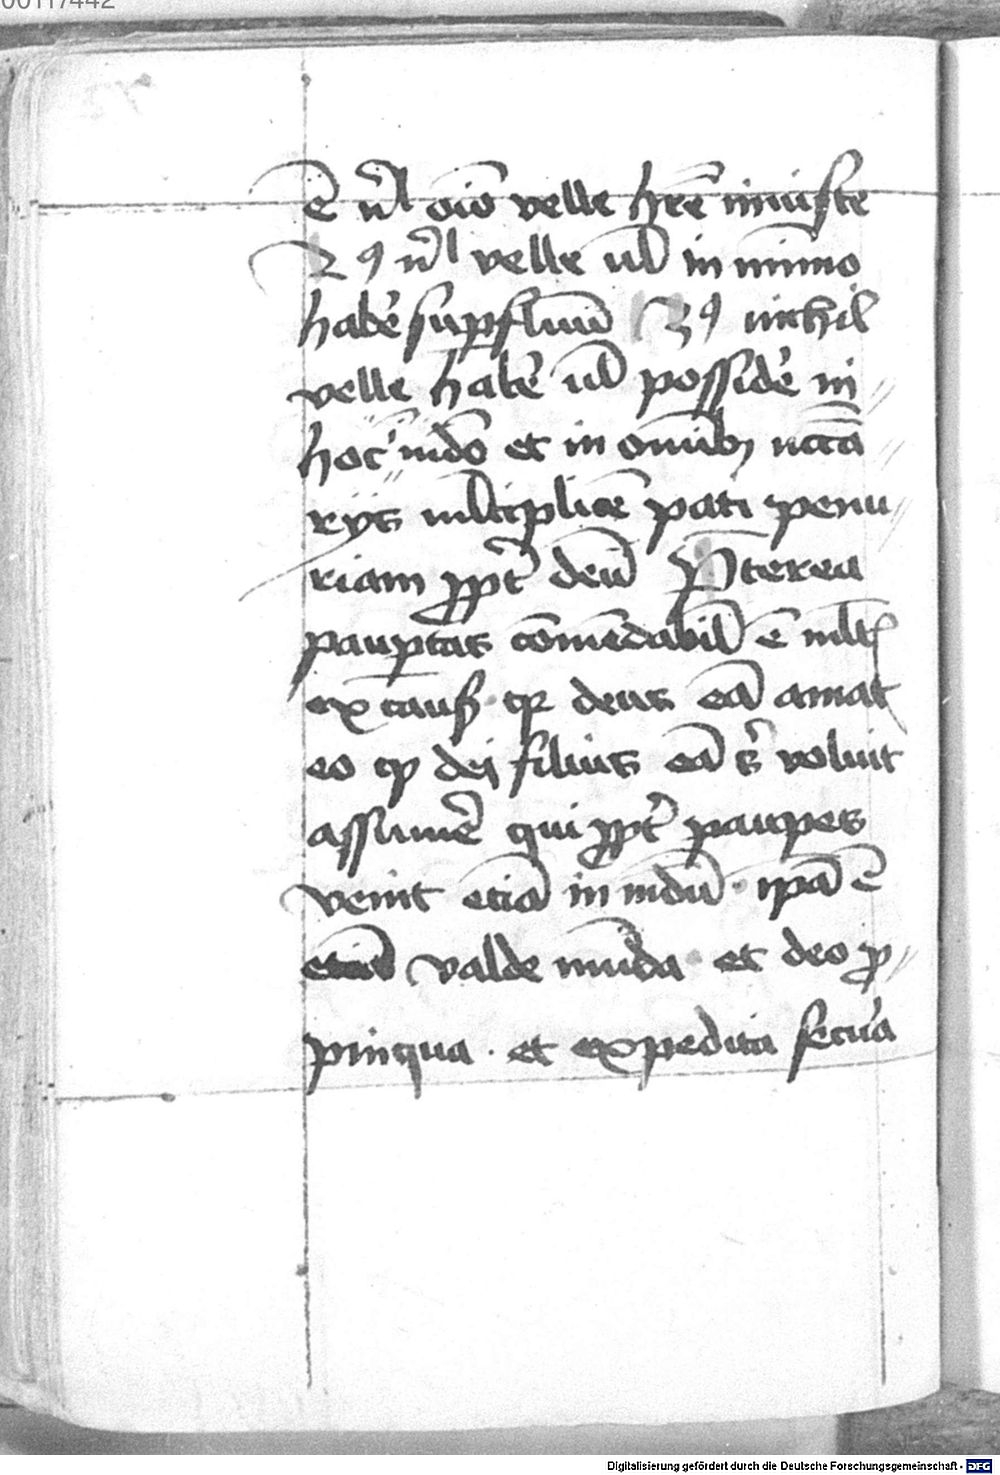 00117442
ē nl̄ oīo velle hr̄e iniuste
2⁹ nl̄ velle ul̄ in mīmo
habe͛ suꝑfluū 3⁹ nichil
velle habe͛ ul̄ posside͛ in //
hoc mdo et in omībꝫ ncc̄a //
rijs ml̄tiplicē pati penu //
riam ꝓpt͛ deū P̄terea
pauꝑtas cōmēdabil̄ ē ml̄t
ex caus̄ · qꝛ deus eā amat
eo ꝙ dei filius eā s͛ voluit
assume͛ qui ꝓpt͛ pauꝑes
venit etiā in mdū · ip̄a ē
etiā valde mūda · et deo ꝓ //
pinqua · et expedita secu͛a
Digitalisierung gefördert durch die Deutsche Forschungsgemeinschaft - DFG